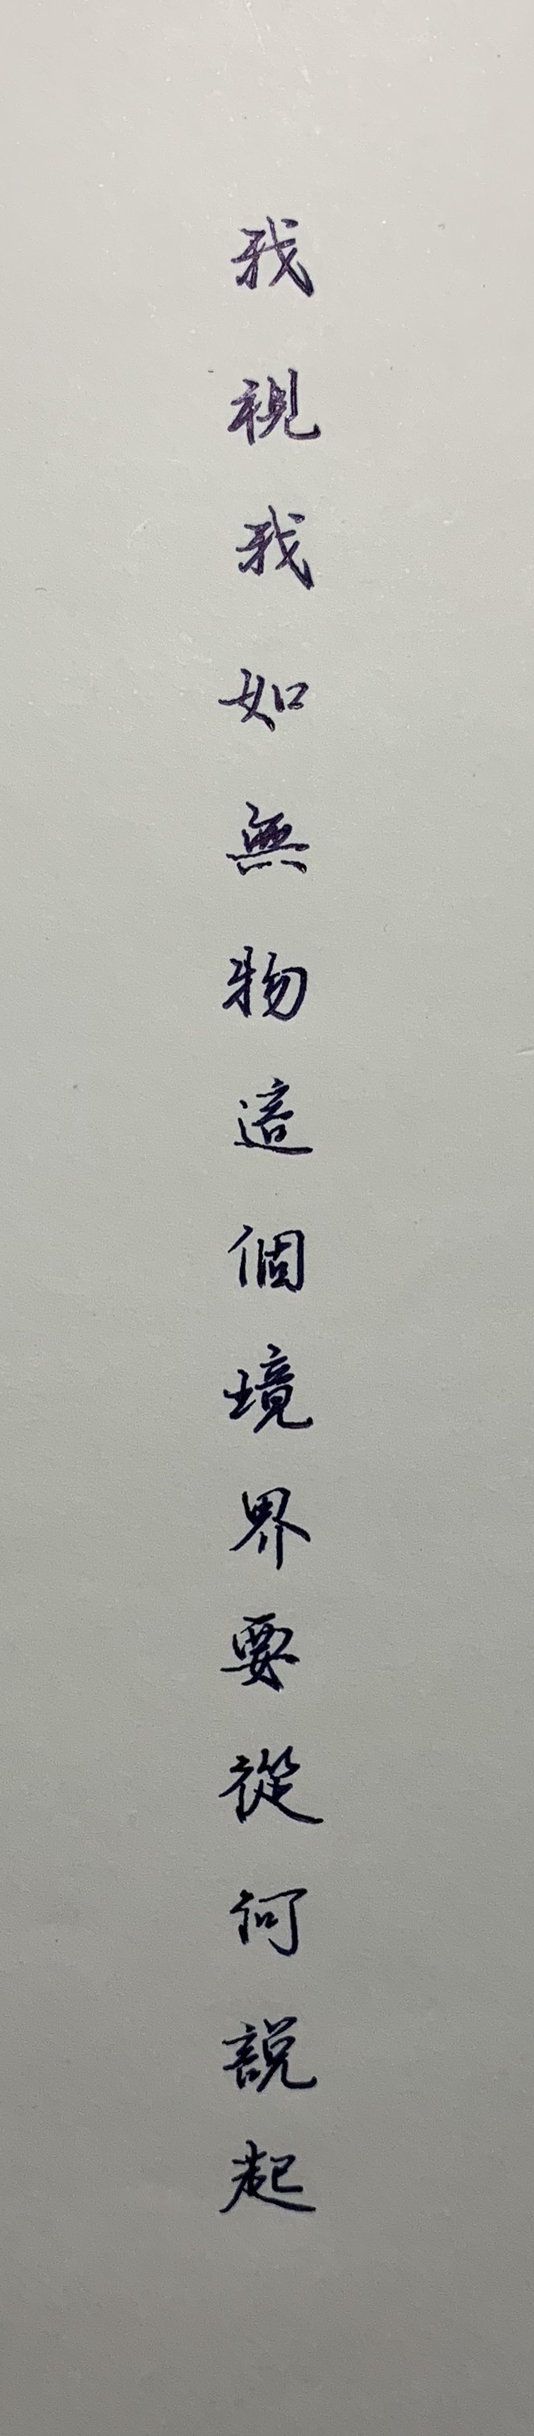 我視我如無物這個境界要從何說起